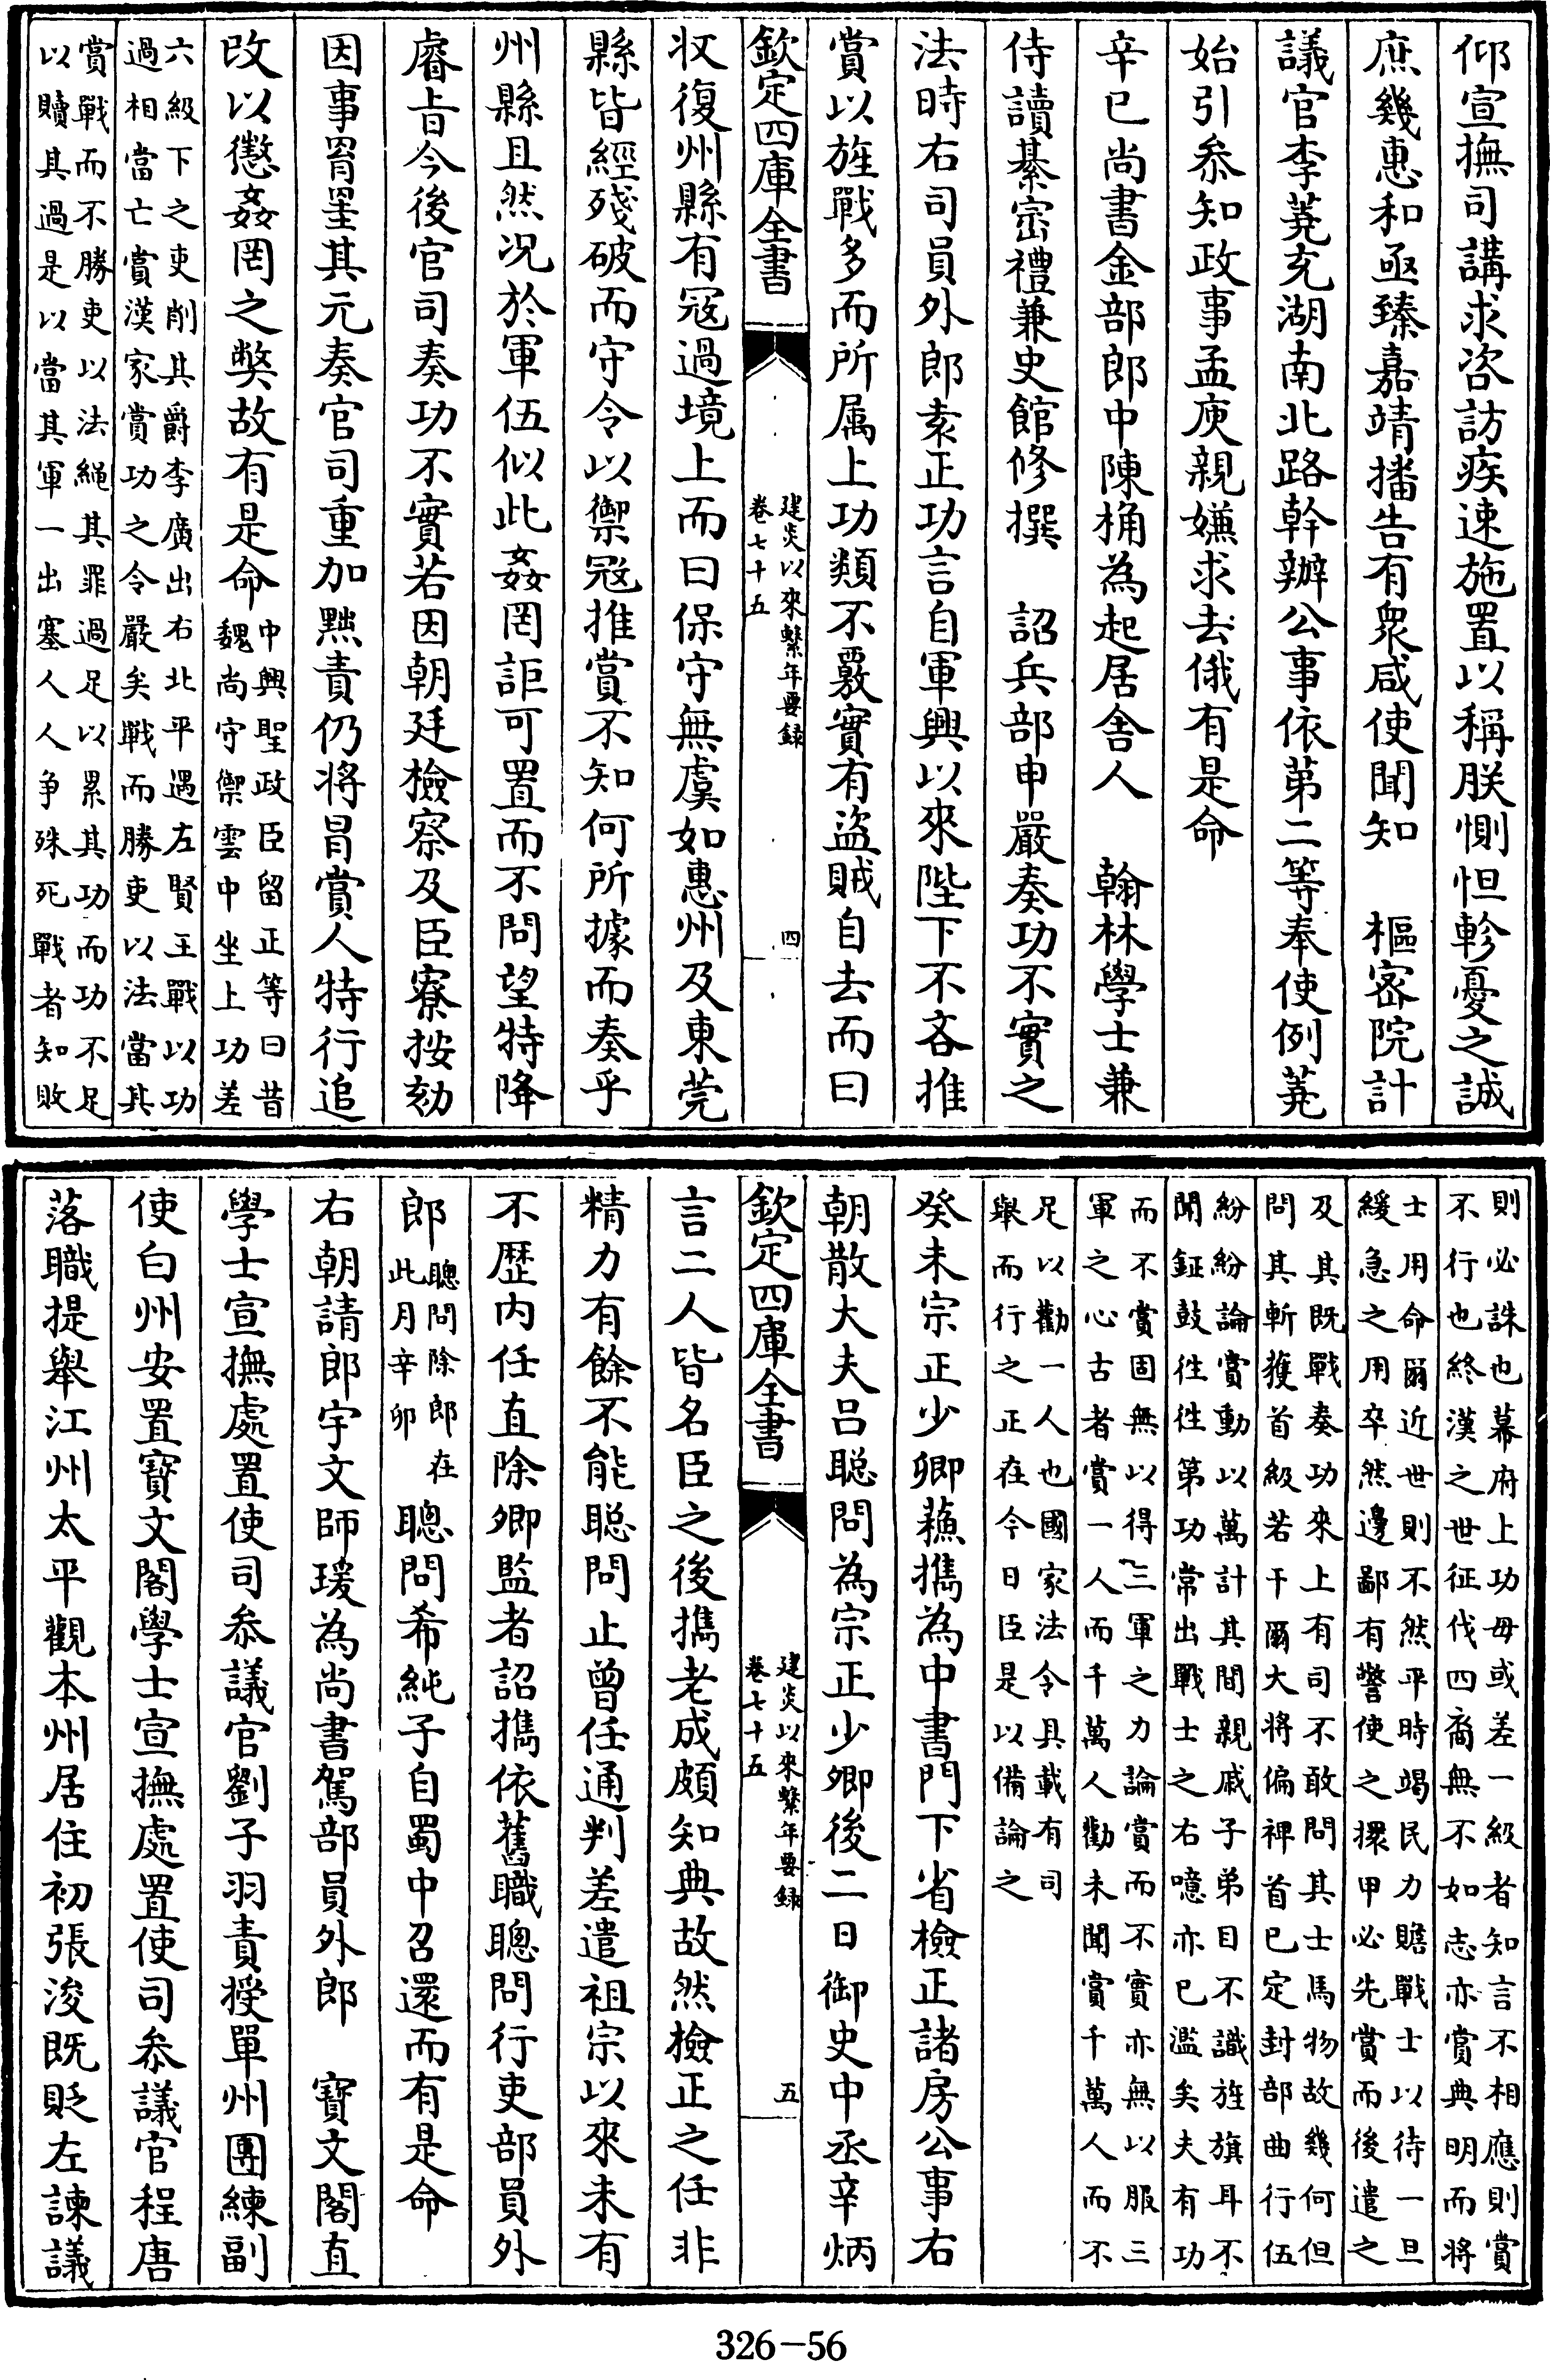 仰宣撫司講求咨訪疾速施置以稱朕惻怛軫憂之誠
庶幾惠和亟臻嘉靖播告有衆咸使聞知　樞宻院計
議官李蕘充湖南北路幹辦公事依第二等奉使例蕘
始引叅知政事孟庾親嫌求去俄有是命
辛巳尚書金部郎中陳桷為起居舍人　翰林學士兼
侍讀綦崈禮兼史館修撰　詔兵部申嚴奏功不實之
法時右司員外郎索正功言自軍興以來陛下不吝推
賞以旌戰多而所属上功類不覈實有盜賊自去而曰
欽定四庫全書
建炎以來繫年要錄
卷七十五
四
收復州縣有冦過境上而曰保守無虞如惠州及東莞
縣皆經殘破而守令以禦冦推賞不知何所據而奏乎
州縣且然况於軍伍似此姦罔詎可置而不問望特降
睿旨今後官司奏功不實若因朝廷檢察及臣寮按劾
因事罥罣其元奏官司重加黜責仍将冒賞人特行追
改以懲姦罔之獘故有是命
中興聖政臣留正等曰昔
魏尚守禦雲中坐上功差
六級下之吏削其爵李廣出右北平遇左賢王戰以功
過相當亡賞漢家賞功之令嚴矣戰而勝吏以法當其
賞戰而不勝吏以法繩其罪過足以累其功而功不足
以贖其過是以當其軍一出塞人人争殊死戰者知敗
則必誅也幕府上功毋或差一級者知言不相應則賞
不行也終漢之世征伐四裔無不如志亦賞典明而将
士用命爾近世則不然平時竭民力贍戰士以待一旦
緩急之用卒然邊鄙有警使之擐甲必先賞而後遣之
及其既戰奏功來上有司不敢問其士馬物故幾何但
問其斬獲首級若干爾大将偏裨首已定封部曲行伍
紛紛論賞動以萬計其間親戚子弟目不識旌旗耳不
聞鉦鼓徃徃第功常出戰士之右噫亦已濫矣夫有功
而不賞固無以得三軍之力論賞而不實亦無以服三
軍之心古者賞一人而千萬人勸未聞賞千萬人而不
足以勸一人也國家法令具載有司
舉而行之正在今日臣是以備論之
癸未宗正少卿蘓攜為中書門下省檢正諸房公事右
朝散大夫吕聪問為宗正少卿後二日御史中丞辛炳
欽定四庫全書
建炎以來繫年要錄
卷七十五
五
言二人皆名臣之後攜老成頗知典故然檢正之任非
精力有餘不能聪問止曾任通判差遣祖宗以來未有
不歴内任直除卿監者詔攜依舊職聰問行吏部員外
郎
聰問除郎在
此月辛卯
聰問希純子自蜀中召還而有是命
右朝請郎宇文師瑗為尚書駕部員外郎　寶文閣直
學士宣撫處置使司叅議官劉子羽責授單州團練副
使白州安置寶文閣學士宣撫處置使司叅議官程唐
落職提舉江州太平觀本州居住初張浚既貶左諫議
326-56